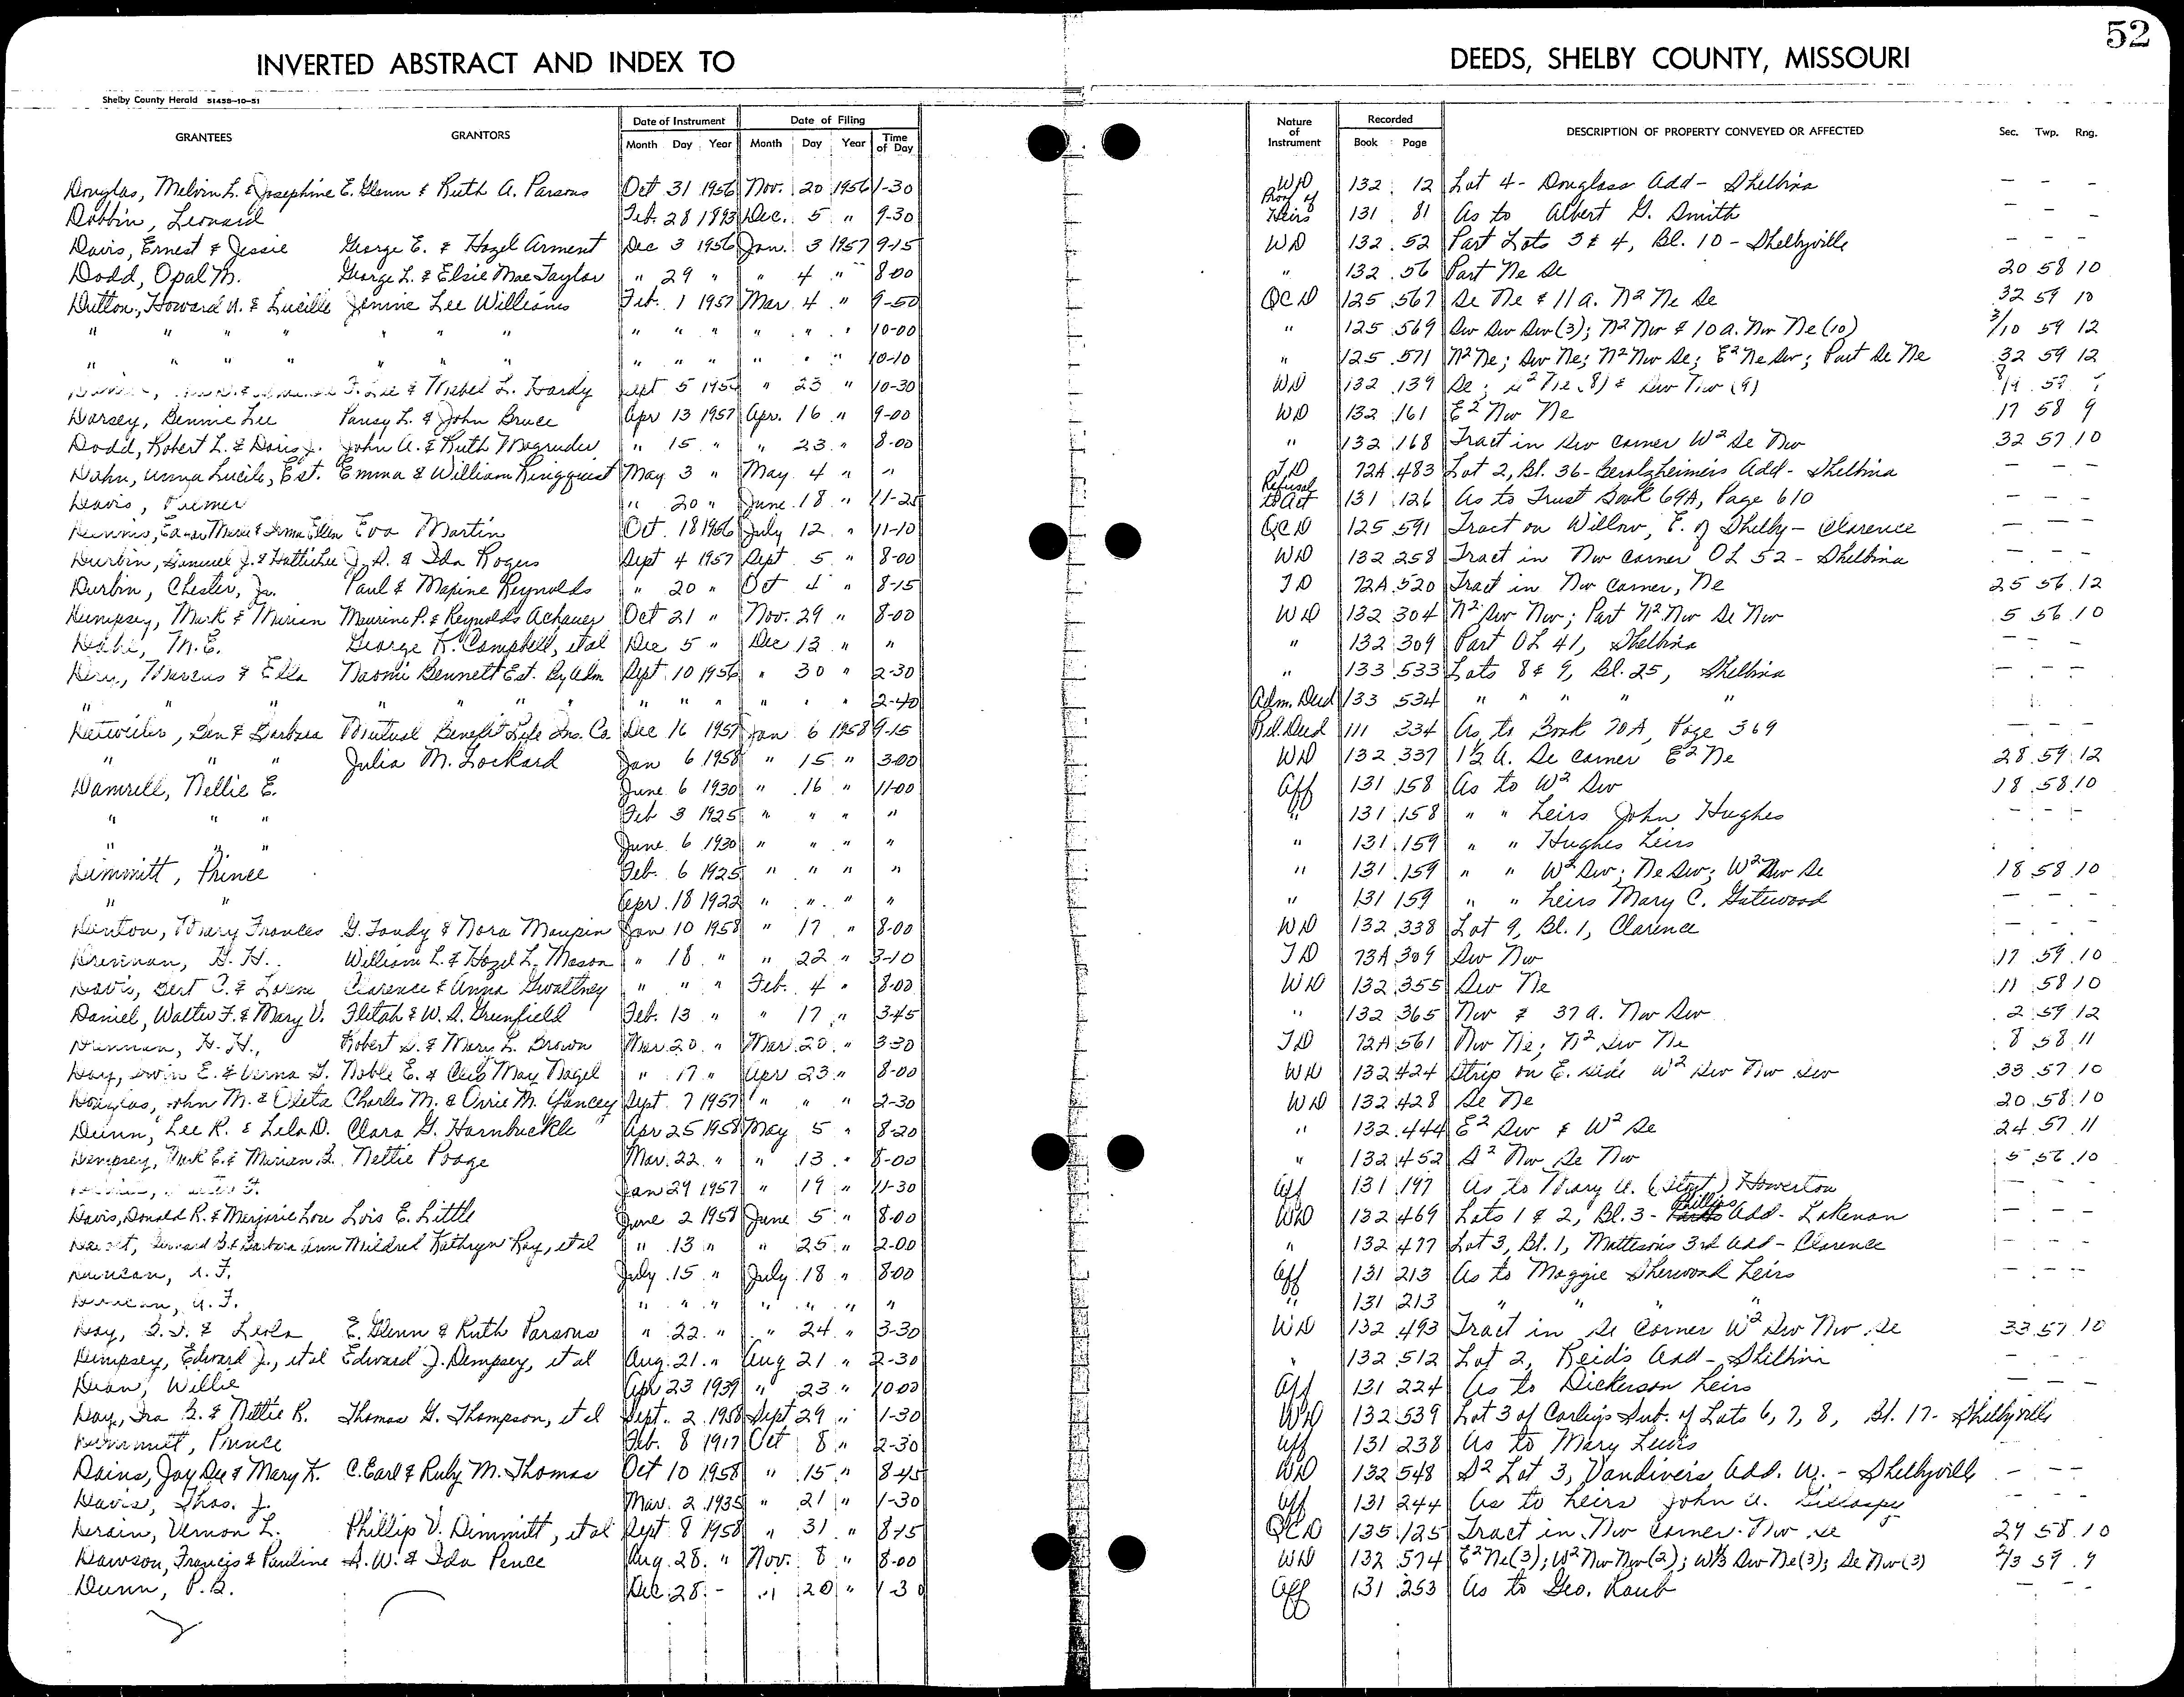 52
INVERTED ABSTRACT AND INDEX TO DEEDS, SHELBY COUNTY, MISSOURI
Shelby County Herald 51458-10-51
GRANTEES GRANTORS Date of Instrument Date of Filing Nature of Instrument Recorded DESCRIPTION OF PROPERTY CONVEYED OR AFFECTED Sec. Twp. Rng.
Month Day Year Month Day Year Time of Day Book Page
Douglas, Melvin L. & Josephine E. Glenn & Ruth A. Parsons Oct 31 1956 Nov. 20 1956 1-30 WD 132 12 Lot 4 - Douglass Add - Shelbina - - -
Dobbin, Leonard Feb. 28 1893 Dec. 5 " 9-30 Proof of Heirs 131 81 As to Albert G. Smith - - -
Davis, Ernest & Jessie George E. & Hazel Arment Dec 3 1956 Jan. 3 1957 9-15 WD 132 52 Part Lots 3 & 4, Bl. 10 - Shelbyville - - -
Dodd, Opal M. George L. & Elsie Mae Taylor " 29 " " 4 " 8-00 " 132 56 Part Ne Se 20 58 10
Dutton, Howard A. & Lucille Jennie Lee Williams Feb. 1 1957 Mar. 4 " 9-50 QCD 125 567 Se Ne & 11 a. N2 Ne Se 32 59 10
" " " " " " " " " " " " " " 10-00 " 125 569 Sw Sw Sw (3); N2 Nw & 10 a. Nw Ne (10) 3/10 59 12
" " " " " " " " " " " " " 10-10 " 125 571 N2 Ne; Sw Ne; N2 Nw Se; E2 Ne Sw; Part Se Ne 32 59 12
F. Lee & Mabel L. Hardy Sept 5 " 23 " 10-30 WD 132 139 Se; (8) & Sw Nw (9)
Dorsey, Bennie Lee Pansy L. & John Bruce Apr 13 1957 Apr. 16 " 9-00 WD 132 161 E2 Nw Ne 17 58 9
Dodd, Robert L. & Doris J. John A. & Ruth Magruder " 15 " " 23 " 8-00 " 132 168 Tract in Sw corner W2 Se Nw 32 57 10
Dahn, Anna Lucile, Est. Emma & William Ringquist May 3 " May 4 " " TD 72A 483 Lot 2, Bl. 36 - Add - Shelbina - - -
Davis, " 20 " June 18 " 11-25 Refusal to Act 131 126 As to Trust Book 69A, Page 610 - - -
Dennis, Eva Martin Oct. 18 1956 July 12 " 11-10 QCD 125 591 Tract on Willow, E. of Shelby - Clarence - - -
Durbin, Samuel J. & Hattie Lee J. A. & Ida Rogers Sept 4 1957 Sept 5 " 8-00 WD 132 258 Tract in Nw corner OL 52 - Shelbina - - -
Durbin, Chester, Jr. Paul & Maxine Reynolds " 20 " Oct 4 " 8-15 TD 72A 520 Tract in Nw corner, Ne 25 56 12
Dempsey, Mark & Marian Maurine P. & Reynolds Achauer Oct 21 " Nov. 29 " 8-00 WD 132 304 N2 Sw Nw; Part N2 Nw Se Nw 5 56 10
M. E. George K. Campbell, et al Dec 5 " Dec 13 " " " 132 309 Part OL 41, Shelbina - - -
Marcus & Ella Naomi Bennett Est. By Adm Sept 10 1956 " 30 " 2-30 " 133 533 Lots 8 & 9, Bl. 25, Shelbina - - -
" " " " " " " " " " " 2-40 Adm. Deed 133 534 " " " " "
Detweiler, Ben & Barbara Mutual Benefit Life Ins. Co. Dec 16 1957 Jan 6 1958 9-15 Rel. Deed 111 334 As to Book 70A, Page 369 - - -
" " " Julia M. Lockard Jan 6 1958 " 15 " 3-00 WD 132 337 1½ a. Se corner E2 Ne 28 59 12
Damrell, Nellie E. June 6 1930 " 16 " 11-00 Aff 131 158 As to W2 Sw 18 58 10
" " " Feb 3 1925 " " " " " 131 158 " " Heirs John Hughes - - -
" " " June 6 1930 " " " " " 131 159 " " Hughes Heirs
Dimmitt, Prince Feb. 6 1925 " " " " " 131 159 " " W2 Sw; Ne Sw; W2 Sw Se 18 58 10
" " Apr. 18 1922 " " " " " 131 159 " " heirs Mary C. Gatewood - - -
Denton, Mary Frances G. Tandy & Nora Maupin Jan 10 1958 " 17 " 8-00 WD 132 338 Lot 9, Bl. 1, Clarence - - -
Drennan, H. H. William L. & Hazel L. Mason " 18 " " 22 " 3-10 TD 73A 309 Sw Nw 17 59 10
Davis, Bert C. & Lorene Clarence & Anna Gwaltney " " " Feb. 4 " 8-00 WD 132 355 Sw Ne 11 58 10
Daniel, Walter F. & Mary V. Fletah & W. A. Greenfield Feb. 13 " " 17 " 3-45 " 132 365 Nw & 37 a. Nw Sw 2 59 12
Drennan, H. H., Robert S. & Mary L. Brown Mar. 20 " Mar. 20 " 3-30 TD 72A 561 Nw Ne; N2 Sw Ne 8 58 11
Day, Erwin E. & Verna D. Noble E. & Cleo May Nagel " 17 " Apr 23 " 8-00 WD 132 424 Strip on E. side W2 Sw Nw Sw 33 57 10
Douglas, John M. & Oleta Charles M. & Orrie M. Yancey Sept. 7 1957 " " " 2-30 WD 132 428 Se Ne 20 58 10
Dunn, Lee R. & Lela D. Clara G. Hornbuckle Apr 25 1958 May 5 " 8-20 " 132 444 E2 Sw & W2 Se 24 57 11
Dempsey, Mark E. & Marian L. Nettie Poage Mar. 22 " " 13 " 8-00 " 132 452 S2 Nw Se Nw 5 56 10
Jan 29 1957 " 19 " 11-30 Aff 131 197 As to Mary A. Howerton - - -
Davis, Donald R. & Marjorie Lou Lois E. Little June 2 1958 June 5 " 8-00 WD 132 469 Lots 1 & 2, Bl. 3 - Phillips Add - Lakenan - - -
Barbara Ann Mildred Kathryn Ray, et al " 13 " " 25 " 2-00 " 132 477 Lot 3, Bl. 1, Matteson's 3rd Add - Clarence - - -
Duncan, A. F. July 15 " July 18 " 8-00 Aff 131 213 As to Maggie Sherwood heirs - - -
Duncan, A. F. " " " " " " " " 131 213 " " " "
Day, & Leola E. Glenn & Ruth Parsons " 22 " " 24 " 3-30 WD 132 493 Tract in Se Corner W2 Sw Nw Se 33 57 10
Dempsey, Edward J., et al Edward J. Dempsey, et al Aug. 21 " Aug 21 " 2-30 " 132 512 Lot 2, Reid's Add - Shelbina - - -
Dean, Willie Apr 23 1939 " 23 " 10-00 Aff 131 224 As to Dickerson heirs - - -
Day, Ira B. & Nettie R. Thomas G. Thompson, et al Sept. 2 1958 Sept 29 " 1-30 WD 132 539 Lot 3 of Sub. of Lots 6, 7, 8, Bl. 17 - Shelbyville
Dimmitt, Prince Feb. 8 1917 Oct 8 " 2-30 Aff 131 238 As to Mary Lewis
Dains, Jay Dee & Mary K. C. Earl & Ruby M. Thomas Oct 10 1958 " 15 " 8-45 WD 132 548 S2 Lot 3, Vandiver's Add. W. - Shelbyville - - -
Davis, Thos. J. Mar. 2 1935 " 21 " 1-30 Aff 131 244 As to heirs John A. Gillaspy - - -
Vernon L. Phillip V. Dimmitt, et al Sept 8 1958 " 31 " 8-15 QCD 135 125 Tract in Nw Corner Nw Se 29 58 10
Dawson, Francis & Pauline A. W. & Ida Pence Aug. 28 " Nov. 8 " 8-00 WD 132 574 E2 Ne (3); W2 Nw Nw (2); W⅓ Sw Ne (3); Se Nw (3) 2/3 59 9
Dunn, P. B. Dec 28 - " 20 " 1-30 Aff 131 253 As to Geo. Raub - - -